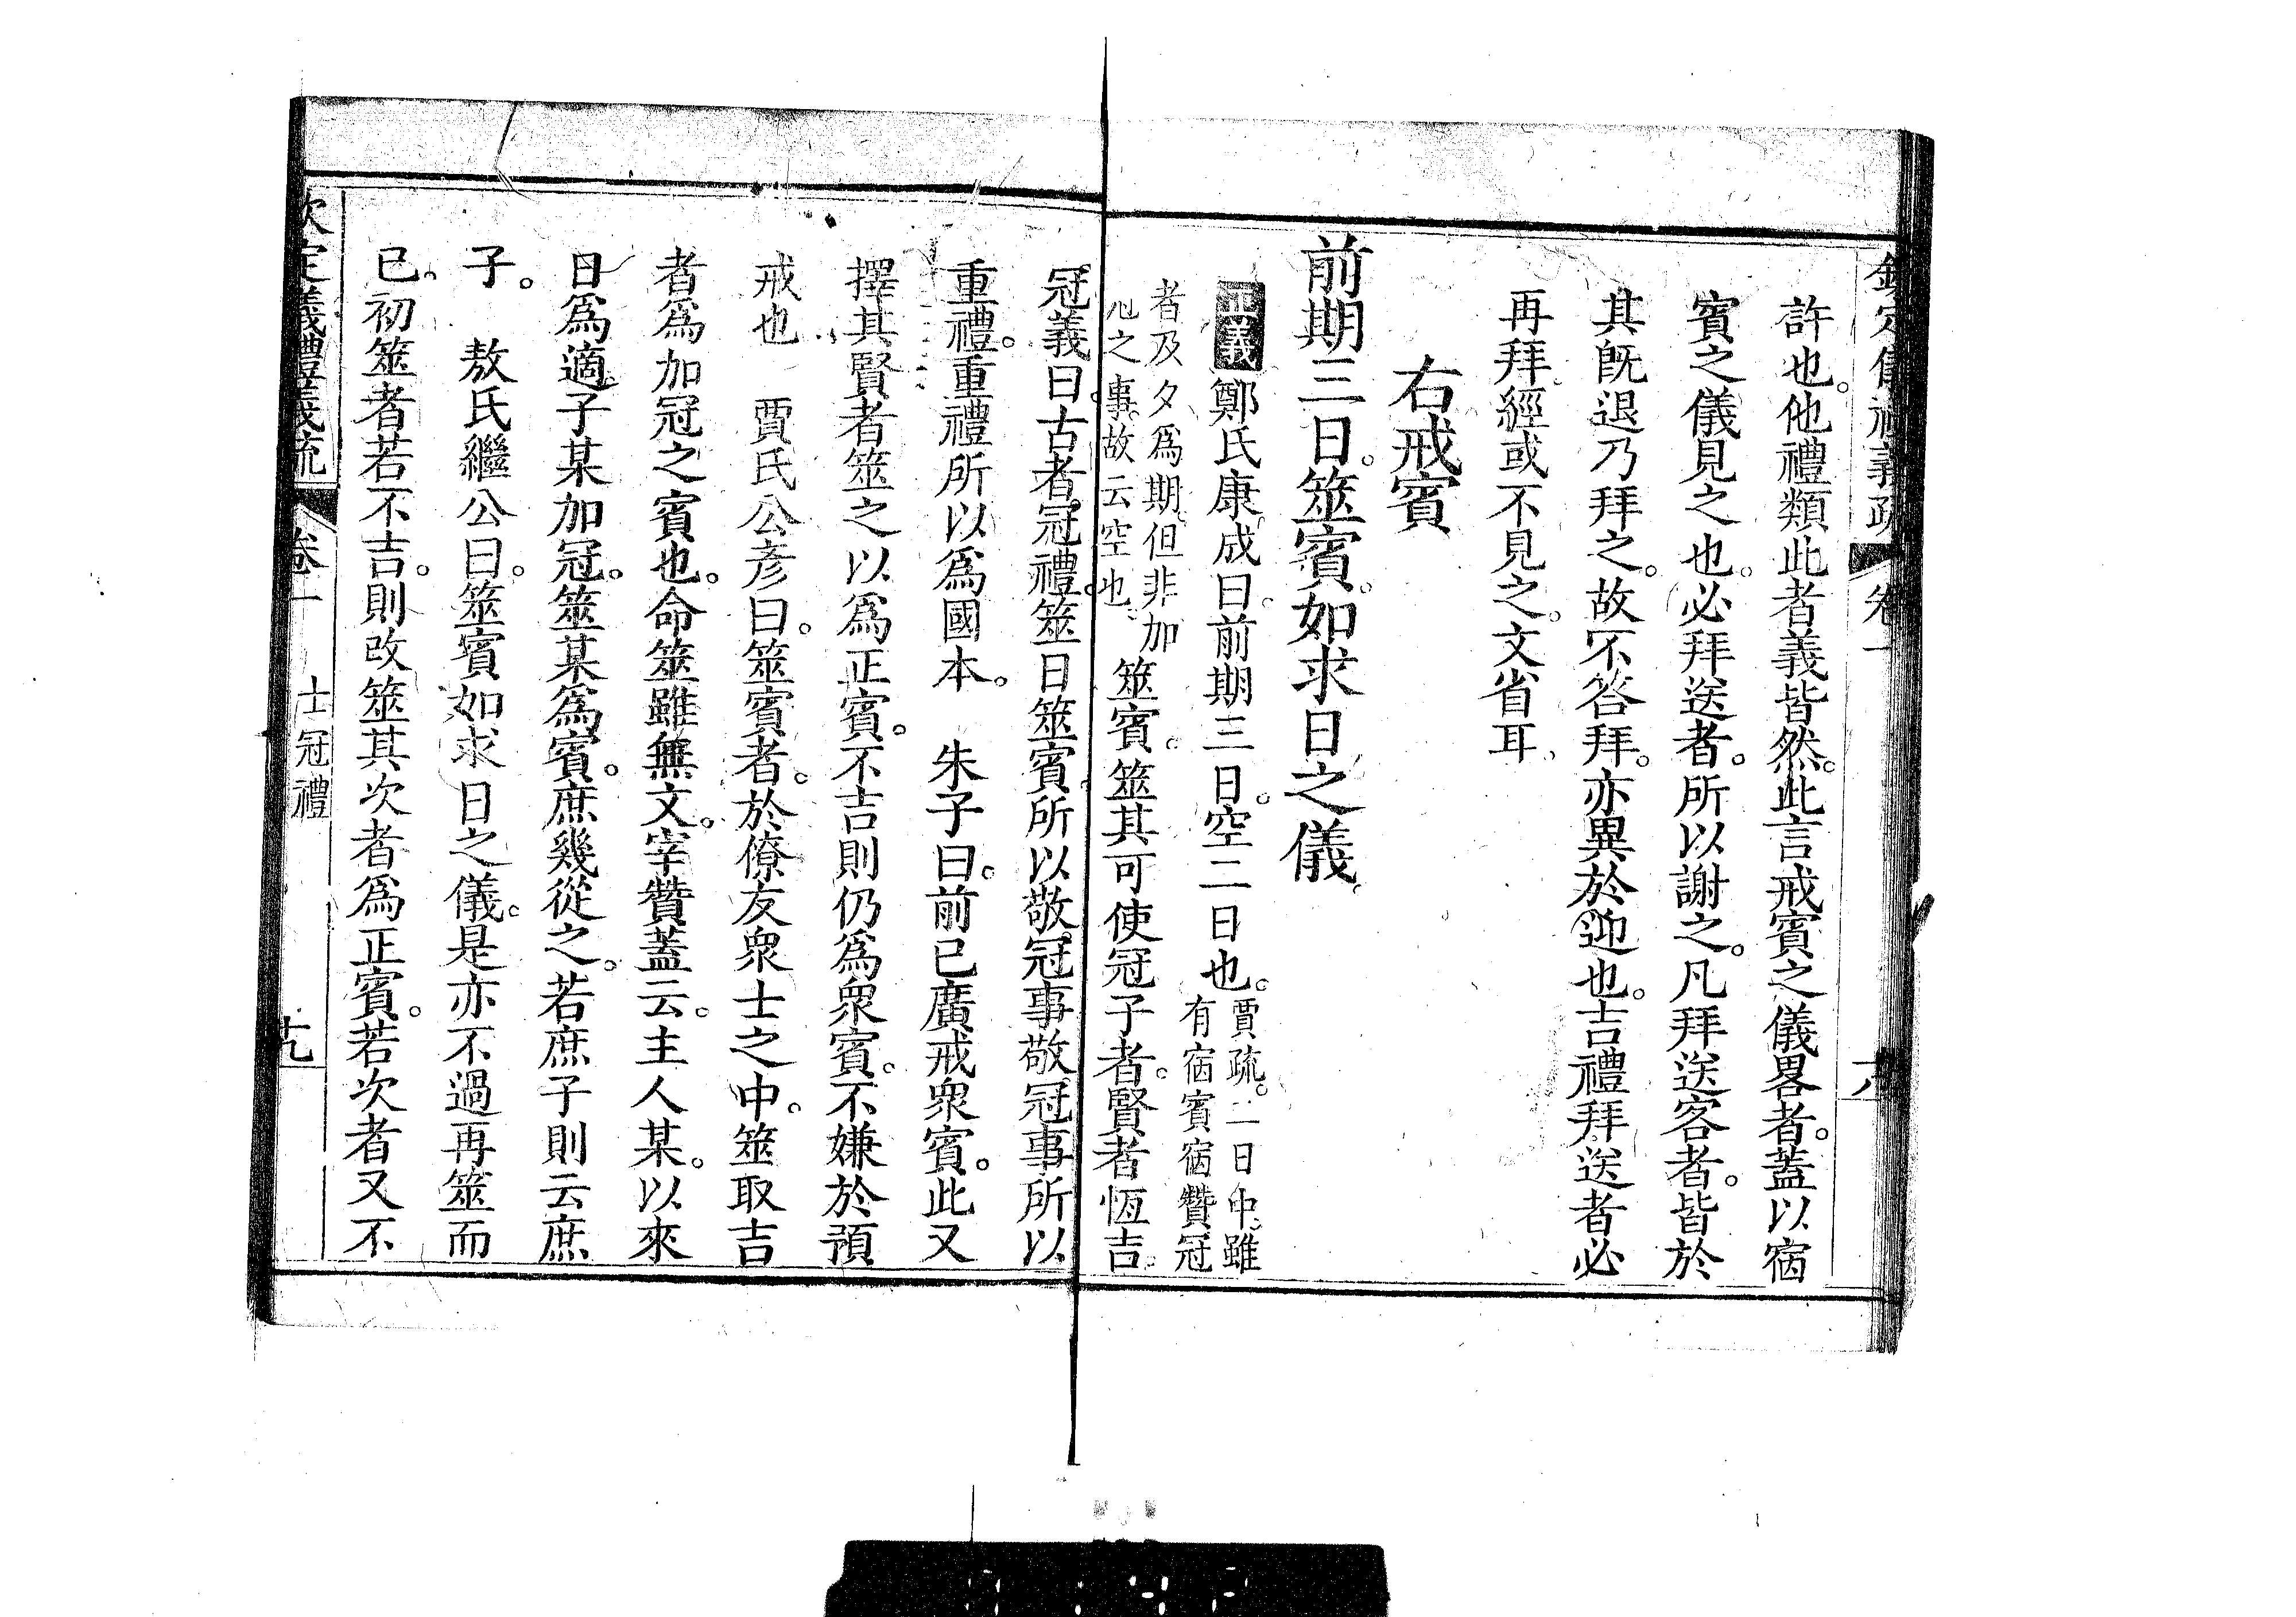 欽定儀禮義疏 卷一
許也。他禮類此者義皆然。此言戒賓之儀畧者。蓋以宿
賓之儀見之也。必拜送者。所以謝之。凡拜送客者。皆於
其旣退乃拜之。故不答拜。亦異於迎也。吉禮拜送者必
再拜。經或不見之。文省耳
右戒賓
前期三日。筮賓。如求日之儀。
正義鄭氏康成曰。前期三日。空二日也。賈疏。二日中。雖有宿賓宿贊冠
者及夕爲期。但非加冠之事。故云空也。筮賓。筮其可使冠子者。賢者恆吉。
冠義曰。古者。冠禮。筮日筮賓。所以敬冠事。敬冠事。所以
重禮。重禮所以爲國本。 朱子曰。前已廣戒衆賓。此又
擇其賢者筮之以爲正賓。不吉則仍爲衆賓。不嫌於預
戒也 賈氏公彥曰。筮賓者。於僚友衆士之中。筮取吉
者爲加冠之賓也。命筮雖無文。宰贊蓋云。主人某。以來
日爲適子某加冠。筮某爲賓。庶幾從之。若庶子則云庶
子。 敖氏繼公曰。筮賓如求日之儀。是亦不過再筮而
已。初筮者若不吉。則改筮其次者爲正賓。若次者又不
欽定義禮義疏 卷一 士冠禮 十九